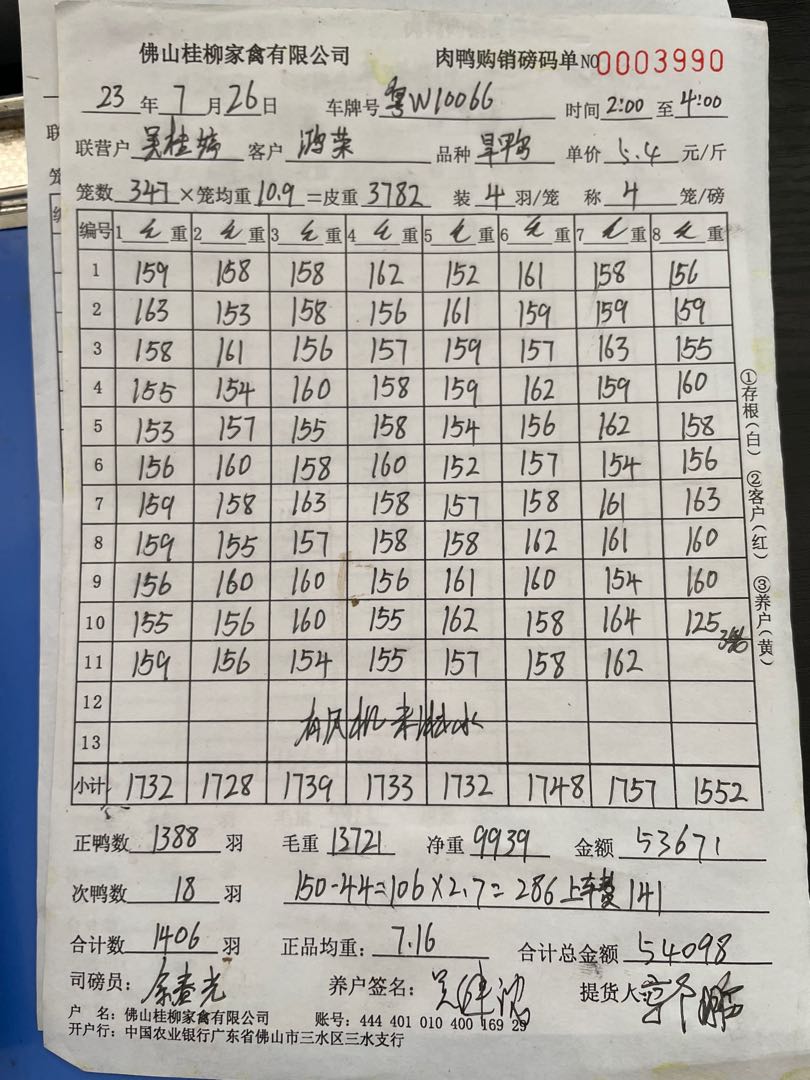 佛山桂柳家禽有限公司 肉鸭购销磅码单 NO 0003990
23 年 7 月 26 日 车牌号 粤W10066 时间 2:00 至 4:00
联营户 吴桂婷 客户 鸿荣 品种 旱鸭 单价 5.4 元/斤
笼数 347 ×笼均重 10.9 =皮重 3782 装 4 羽/笼 称 4 笼/磅
编号 1 毛 重 2 毛 重 3 毛 重 4 毛 重 5 毛 重 6 毛 重 7 毛 重 8 毛 重
1 159 158 158 162 152 161 158 156
2 163 153 158 156 161 159 159 159
3 158 161 156 157 159 157 163 155
4 155 154 160 158 159 162 159 160
5 153 157 155 158 154 156 162 158
6 156 160 158 160 152 157 154 156
7 159 158 163 158 157 158 161 163
8 159 155 157 158 158 162 161 160
9 156 160 160 156 161 160 154 160
10 155 156 160 155 162 158 164 125
11 159 156 154 155 157 158 162
12
有风机 未淋水
13
小计 1732 1728 1739 1733 1732 1748 1757 1552
正鸭数 1388 羽 毛重 13721 净重 9939 金额 53671
次鸭数 18 羽 150-44=106×2.7=286 上车费 141
合计数 1406 羽 正品均重: 7.16 合计总金额 54098
司磅员: 余春光 养户签名: 提货人:
户 名: 佛山桂柳家禽有限公司 账号: 444 401 010 400 169 29
开户行: 中国农业银行广东省佛山市三水区三水支行
①存根(白) ②客户(红) ③养户(黄)